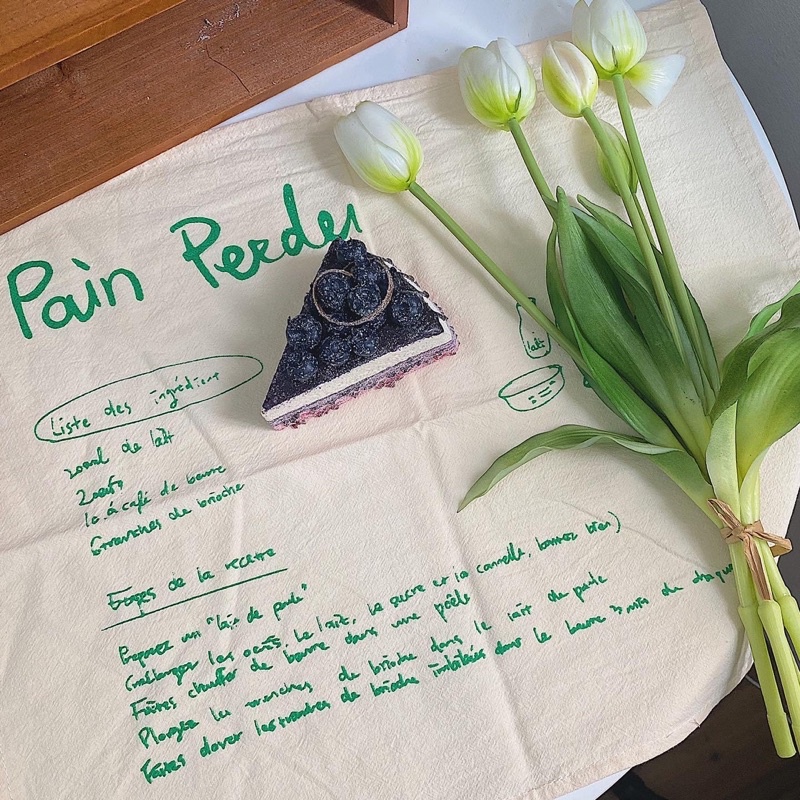 Pain Perdu
Liste des ingrédient
200ml de lait
2oeufs
1c.à café de beurre
6tranches de brioche
lait
Etapes de la recette
Préparez un "lait de poule"
(mélangez les oeufs, le lait, le sucre et la cannelle, battez bien)
Faites chauffer de beurre dans une pôele
Plongez les tranches de brioche dans le lait de poule
Faites dorer les tranches de brioche imbibées dans le beurre 3 min de chaque